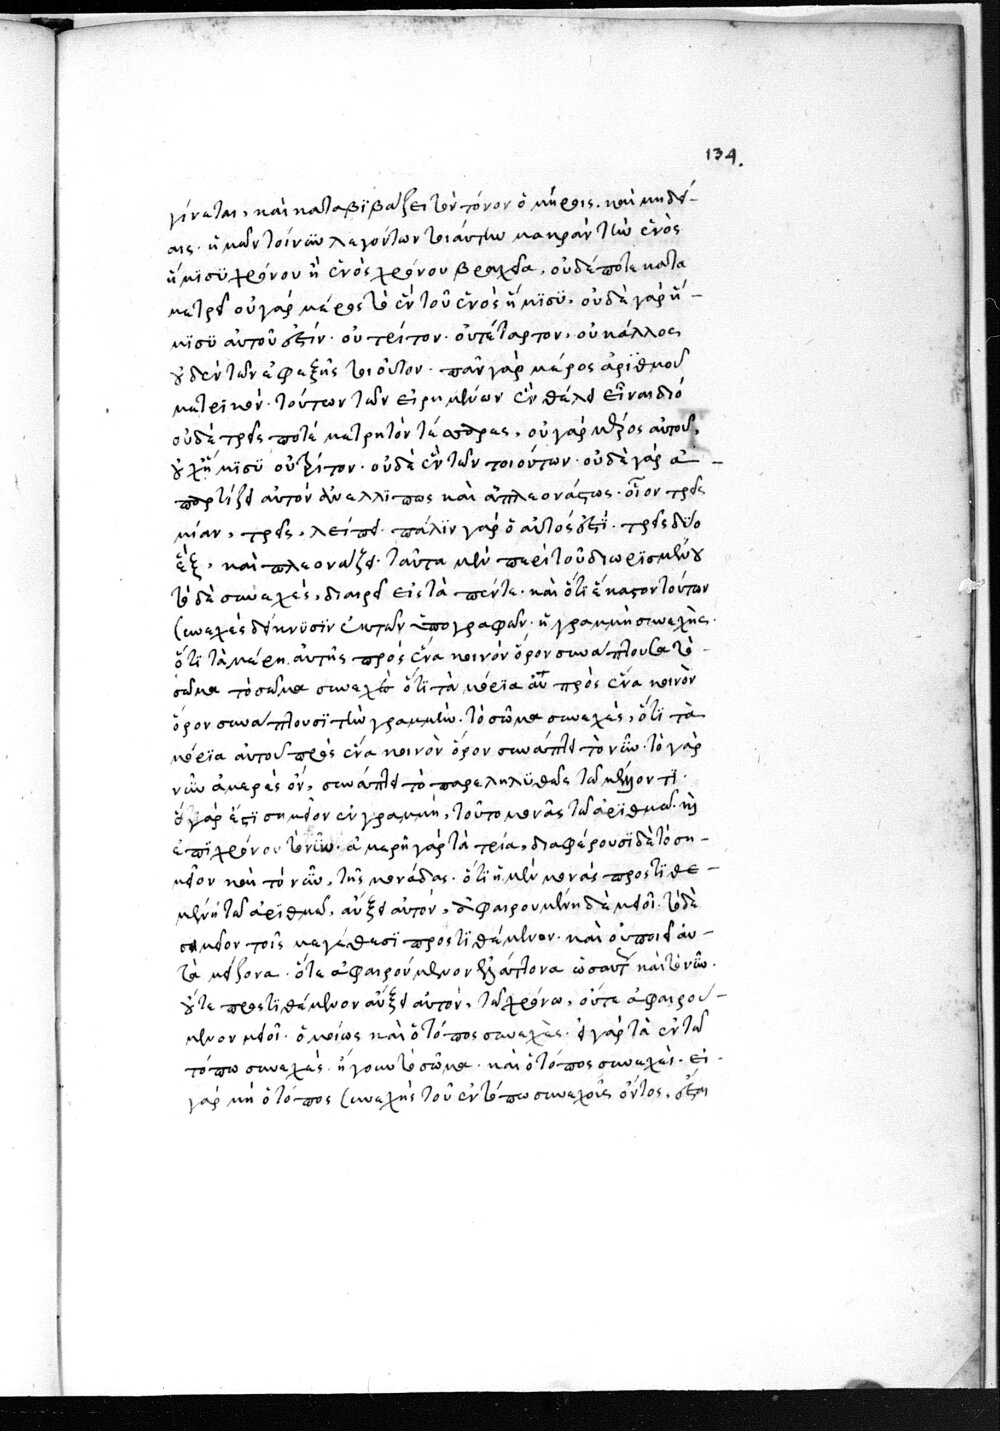 134.
γίνεται, καὶ καταβϊβάζει τὸν τόνον ὁ μέρσις. καὶ μηδέ-
αις. ἡμῶν τοίνῦν λεγόντων τοιάυτην μακρὰν τὴν ἑνὸς
ἥμϊσϋ χρόνου ἢ ἑνὸς χρόνου βραχεῖα, οὐδέποτε κατα
μετρεῖ οὐ γὰρ μέρος τὸ ἓν τοῦ ἑνὸς ἥμϊσϋ. οὐδὲ γὰρ ἥ-
μϊσϋ αὐτοῦ ἐστίν. οὐ τρίτον. οὐ τέταρτον, οὐκ ἄλλος
οὐδὲν τῶν ἐφεξῆς τοιοῦτον. πᾶν γὰρ μέρος ἀρϊθμοῦ
μετρικόν. τούτων τῶν εἰρημένων ἓν θέλει εἶναι διό
οὐδὲ τρεῖς ποτὲ μετρητὸν τέσσαρας, οὐ γὰρ μέρος αὐτοῦ,
οὐχ ἥμϊσϋ οὐ τρίτον. οὐδὲ ἓν τῶν τοιούτων. οὐδὲ γὰρ ἀ-
παρτίζει αὐτὸν ἀνελλϊπως καὶ ἀπλεονάστως. οἷον τρεῖς
μίαν, τρεῖς, λείπει. πάλϊν γὰρ ὁ αὐτός ἐστϊ. τρεῖς δύο
ἓξ, καὶ πλεονάζει. ταῦτα μὲν περὶ τοῦ διωρϊσμένου
τὸ δὲ συνεχὲς, διαιρεῖ εἰς τὰ πέντε. καὶ ὅτι ἕκαστον τούτων
συνεχὲς δείκνϋσϊν ἐκ τῶν ὑπογραφῶν. ἡ γραμμὴ συνεχὴς.
ὅτϊ τὰ μέρη αὐτῆς πρὸς ἕνα κοινὸν ὅρον συνάπτουσα τὸ
σῶμα τὸ σῶμα συνεχὲς ὅτϊ τὰ μόρϊα αὐτοῦ πρὸς ἕνα κοινὸν
ὅρον συνάπτουσϊ τὴν γραμμὴν. τὸ σῶμα συνεχὲς, ὅτϊ τὰ
μόρϊα αὐτοῦ πρὸς ἕνα κοινὸν ὅρον συνάπτει τὸ νῦν. τὸ γὰρ
νῦν ἀμερὲς ὂν, συνάπτει τὸ παρεληλϋθὸς τῶ μέλλοντϊ.
ὃ γάρ ἐστϊ σημεῖον ἐν γραμμῆ, τοῦτο μονὰς τῶ ἀρϊθμῶ. καὶ
ἐπὶ χρόνου τὸ νῦν. ἀμερῆ γὰρ τὰ τρία, διαφέρουσϊ δὲ τὸ ση-
μεῖον καὶ τὸ νῦν, τῆς μονάδος. ὅτι ἡ μὲν μονὰς προστϊθε-
μένη τῶ ἀρϊθμῶ, αὔξει αὐτὸν, ἀφαιρουμένη δὲ μειοῖ. τὸ δὲ
σημεῖον τοῖς μεγέθεσϊ προστϊθέμενον. καὶ οὐ ποιεῖ αὐ-
τὰ μείζονα. οὔτε ἀφαιρούμενον ἐλάττονα ὡσαύτως καὶ τὸ νῦν.
οὔτε προστϊθέμενον αὔξει αὐτὸν, τῶ χρόνω, οὔτε ἀφαιρού-
μενον μειοῖ. ὁμοίως καὶ ὁ τόπος συνεχὲς. εἰ γὰρ τὰ ἐν τῶ
τόπω συνεχὲς. ἤγουν τὸ σῶμα. καὶ ὁ τόπος συνεχὲς. εἰ-
γὰρ μὴ ὁ τόπος συνεχὴς τοῦ ἐν τόπω συνεχοῦς ὄντος, ἔσται